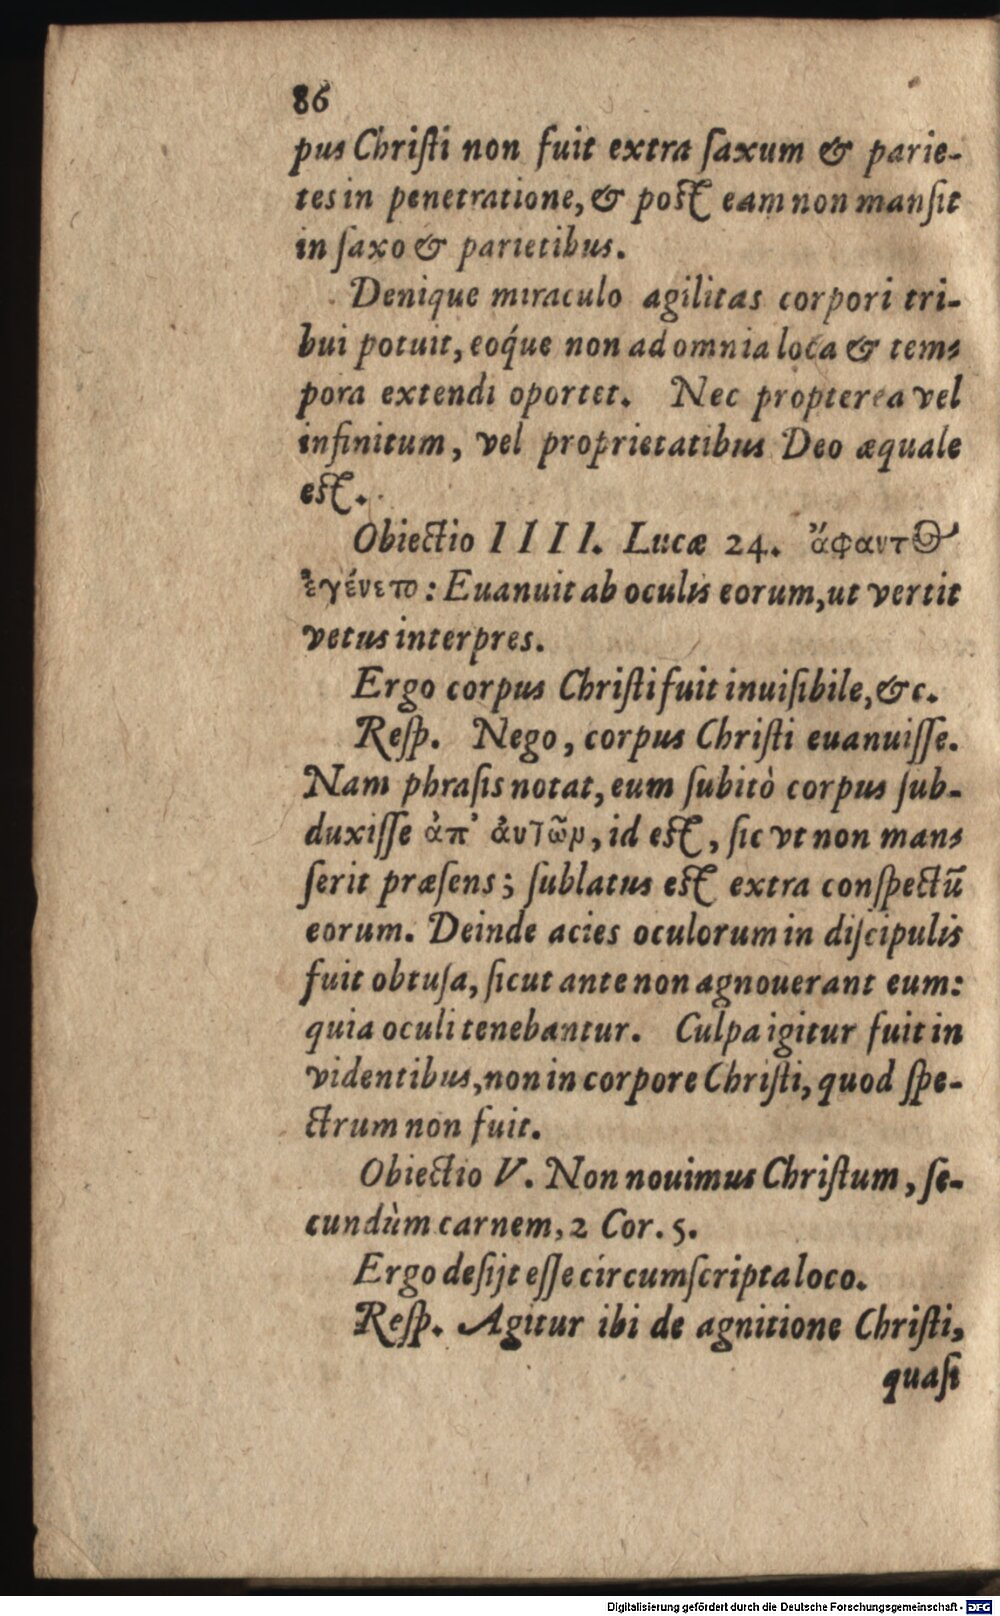 86
pus Chriſti non fuit extra ſaxum & parie-
tes in penetratione, & poſt eam non manſit
in ſaxo & parietibus.
Denique miraculo agilitas corpori tri-
bui potuit, eoq́ue non ad omnia loca & tem-
pora extendi oportet. Nec propterea vel
infinitum, vel proprietatibus Deo æquale
eſt.
Obiectio IIII. Lucæ 24. ἄφαντος
ἐγένετο: Euanuit ab oculis eorum, ut vertit
vetus interpres.
Ergo corpus Chriſti fuit inuiſibile, &c.
Reſp. Nego, corpus Chriſti euanuiſſe.
Nam phraſis notat, eum ſubitò corpus ſub-
duxiſſe ἀπ' ἀυτῶν, id eſt, ſic vt non man-
ſerit præſens; ſublatus eſt extra conſpectū
eorum. Deinde acies oculorum in diſcipulis
fuit obtuſa, ſicut ante non agnouerant eum:
quia oculi tenebantur. Culpa igitur fuit in
videntibus, non in corpore Chriſti, quod ſpe-
ctrum non fuit.
Obiectio V. Non nouimus Chriſtum, ſe-
cundùm carnem, 2 Cor. 5.
Ergo deſijt eſſe circumſcripta loco.
Reſp. Agitur ibi de agnitione Chriſti,
quaſi
Digitalisierung gefördert durch die Deutsche Forschungsgemeinschaft - DFG